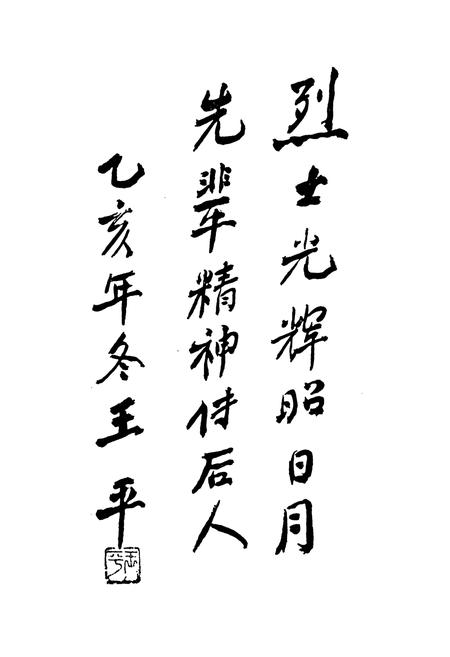 烈士光辉昭日月
先辈精神传后人
乙亥年冬王平
王平